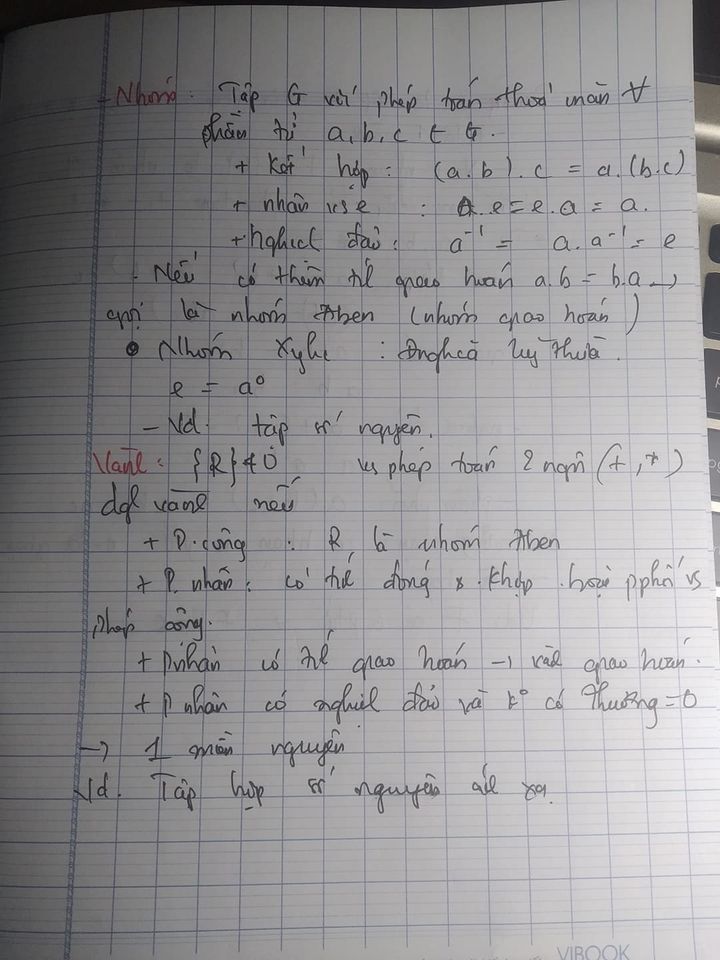 - Nhóm: Tập G với phép toán thoả mãn ∀
phần tử a, b, c ∈ G.
+ Kết hợp: (a.b).c = a.(b.c)
+ nhân vs e : a.e = e.a = a.
+ Nghịch đảo: a⁻¹ = a.a⁻¹ = e
- Nếu có thêm t/c giao hoán a.b = b.a →
gọi là nhóm Aben (nhóm giao hoán)
• Nhóm Xyclic : Đnghĩa luỹ thừa.
e = a⁰
- Vd. tập số nguyên.
Vành: {R} ≠ 0 vs phép toán 2 ngôi (+, *)
đgl vành nếu
+ P. cộng : R là nhóm Aben
+ P. nhân: có t/c đóng & khợp. pphối vs
phép cộng.
+ Pnhân có t/c giao hoán → vành giao hoán.
+ P nhân có nghịch đảo và k° có thương = 0
→ 1 miền nguyên
Vd. Tập hợp số nguyên
VIBOOK